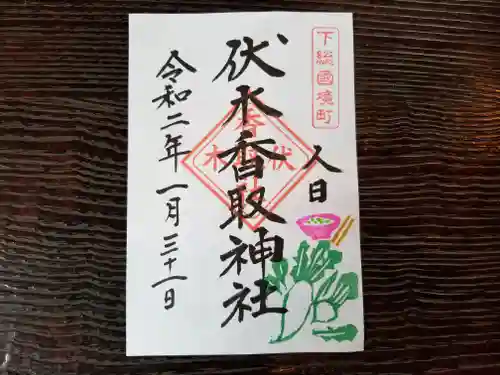 下総國境町
人日
伏木香取神社
伏木
香
令和二年一月三十一日